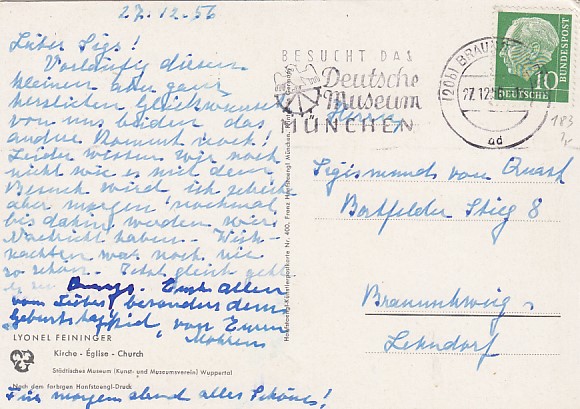 27.12.56
Lieber Sigs!
Vorläufig diesen
kleinen aber ganz
herzlichen Glückwunsch
von uns beiden das
andre kommt noch!
Leider wissen wir noch
nicht wie es mit dem
Besuch wird ich schreibe
aber morgen nochmal
bis dahin werden wir
Nachricht haben. Weih-
nachten war noch nie
so schön. Jetzt gleich geht
es zu Euch allen
vom Liebes besonders dem
Geburtstagskind von Euren
Mohrens
LYONEL FEININGER
Kirche - Église - Church
Städtisches Museum (Kunst- und Museumsverein) Wuppertal
Nach dem farbigen Hanfstaengl-Druck
Für morgen abend alles Schöne!
Hanfstaengl-Künstlerpostkarte Nr. 400, Franz Hanfstaengl München
BESUCHT DAS
Deutsche
Museum
MÜNCHEN
(20b) BRAUNSCHWEIG
27.12.56
ad
DEUTSCHE BUNDESPOST
10
183
Herrn
Sigismund von Quast
Bortfelder Stieg 8
Braunschweig
Lehndorf